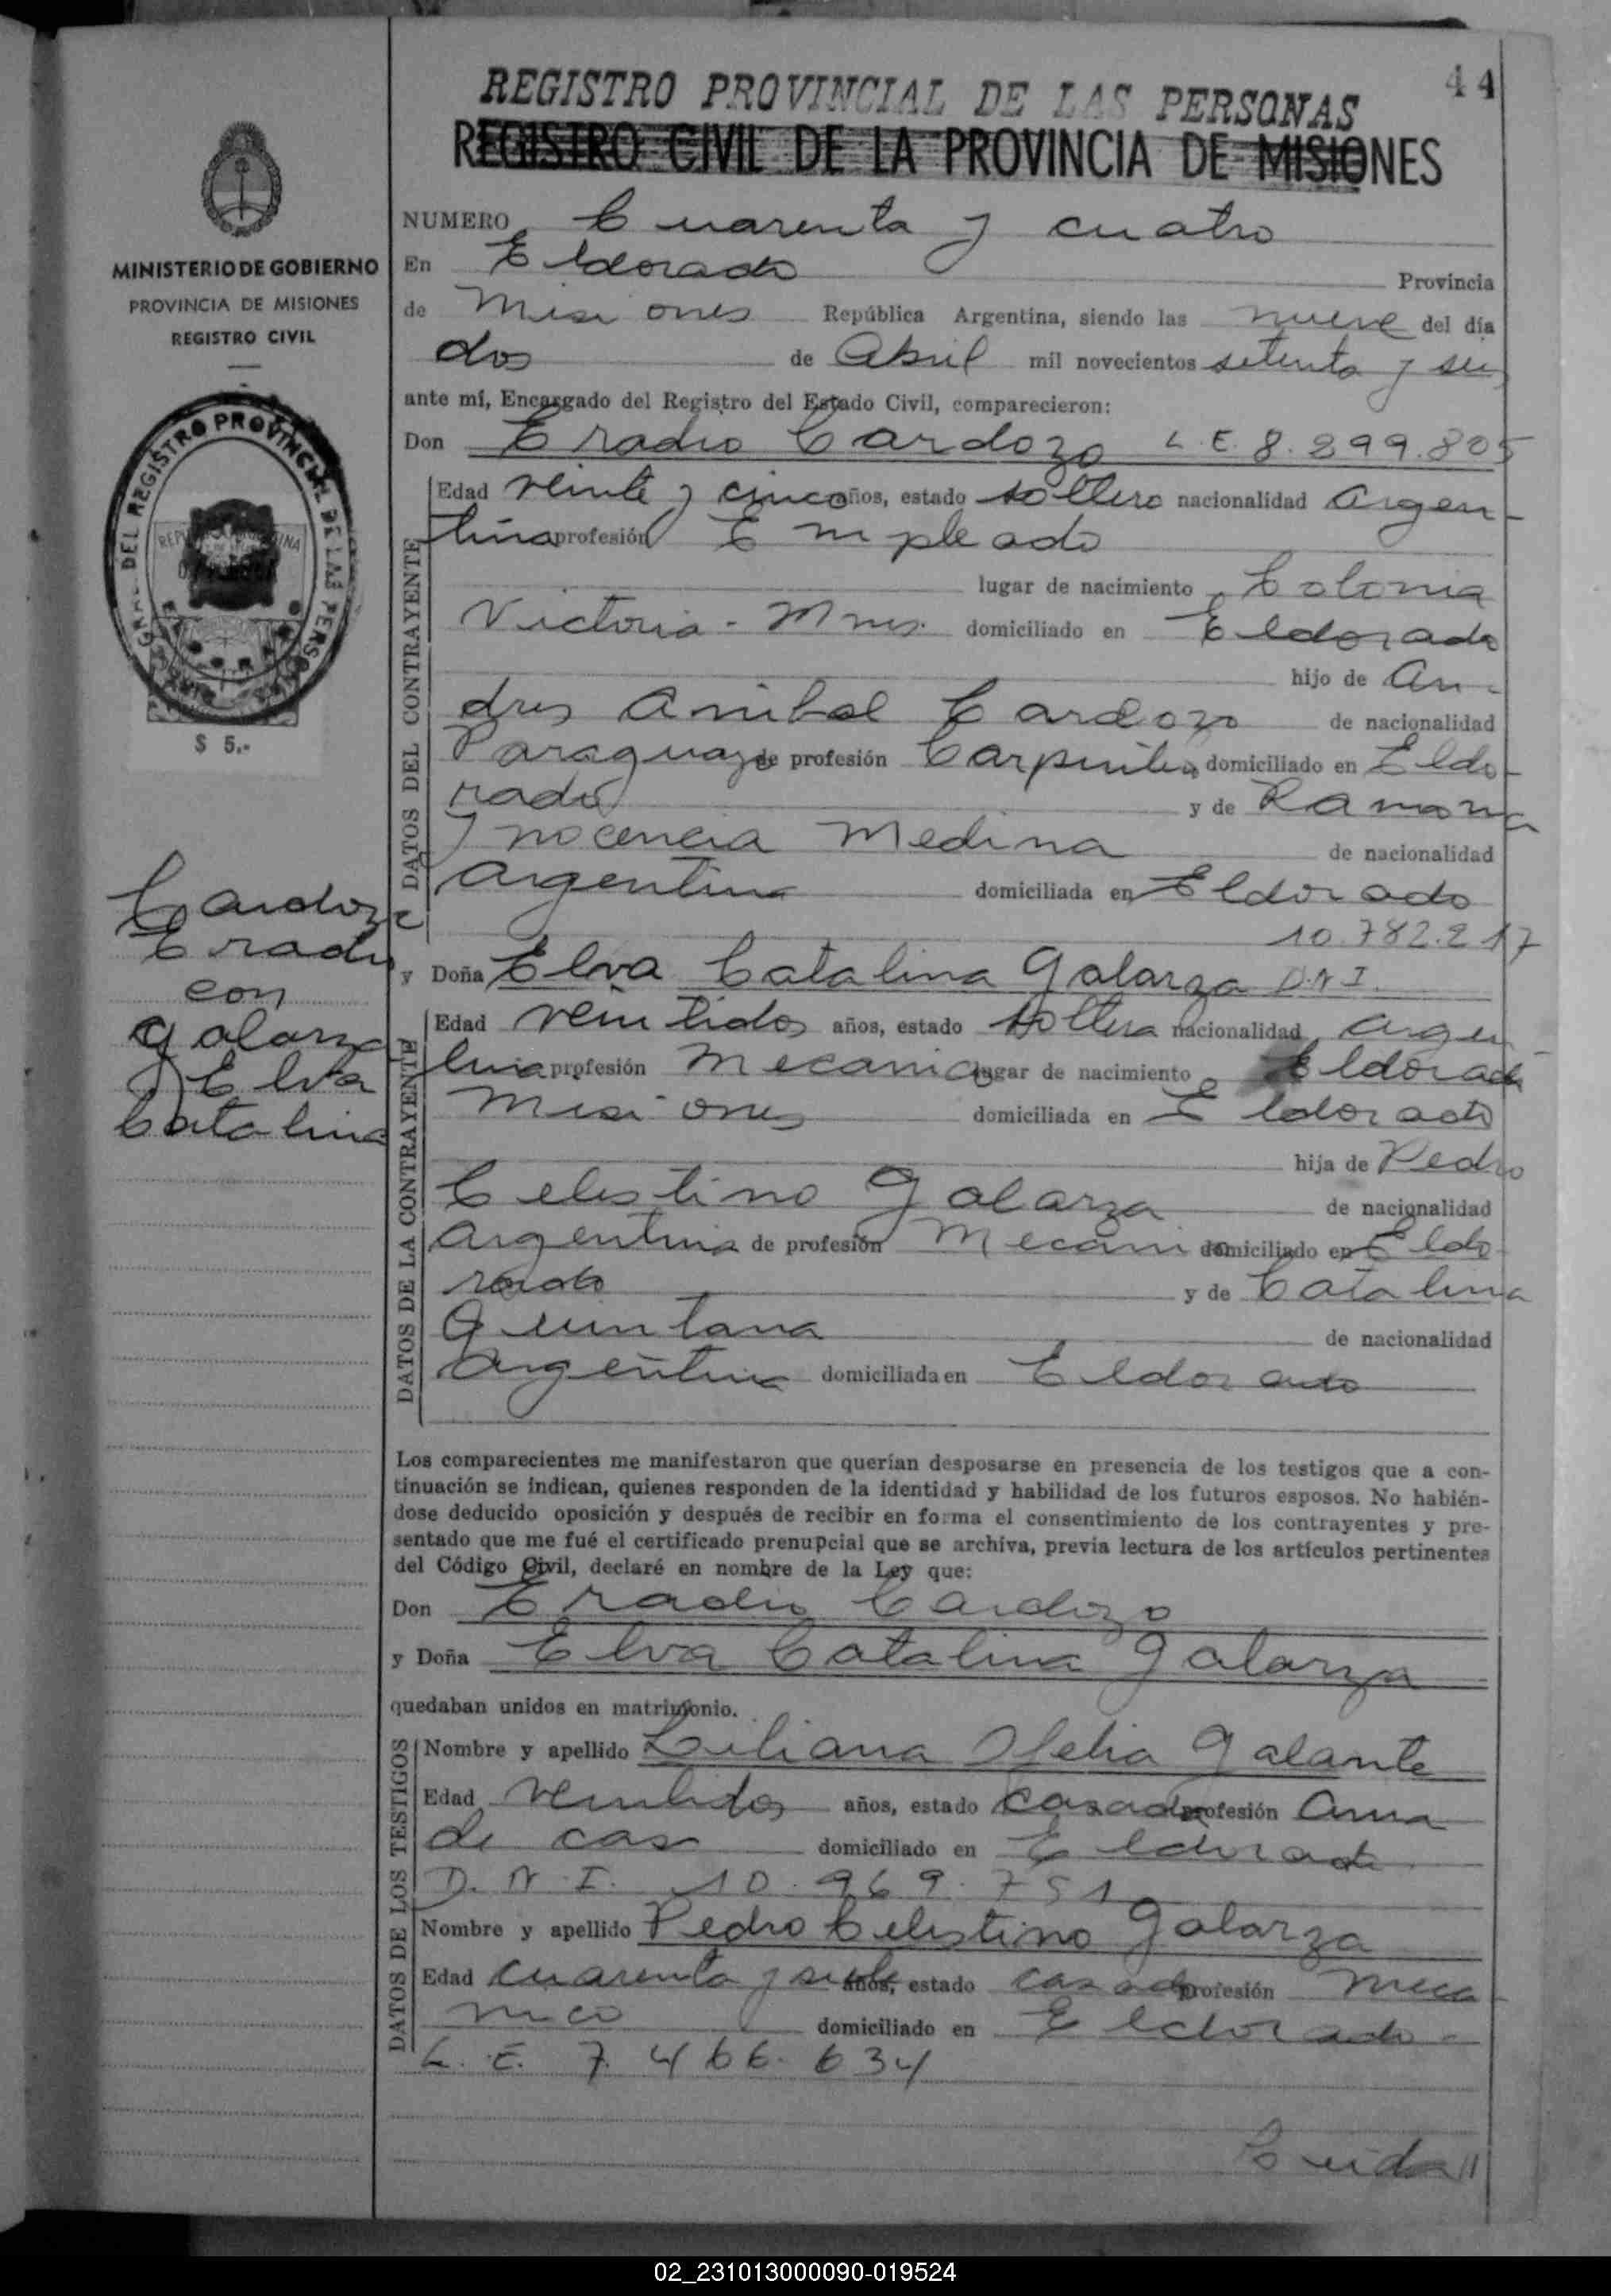 44
REGISTRO PROVINCIAL DE LAS PERSONAS
REGISTRO CIVIL DE LA PROVINCIA DE MISIONES
MINISTERIO DE GOBIERNO
PROVINCIA DE MISIONES
REGISTRO CIVIL
GRAL. DEL REGISTRO PROVINCIAL DE LAS PERSONAS
$ 5.-
Cardozo
Eradio
con
Galarza
Elva
Catalina
NUMERO Cuarenta y cuatro
En Eldorado Provincia
de Misiones República Argentina, siendo las nueve del día
dos de Abril mil novecientos setenta y seis
ante mí, Encargado del Registro del Estado Civil, comparecieron:
Don Eradio Cardozo L.E. 8.299.805
DATOS DEL CONTRAYENTE
Edad veinte y cinco años, estado soltero nacionalidad argen-
tina profesión Empleado
lugar de nacimiento Colonia
Victoria - Mnes. domiciliado en Eldorado
hijo de An-
dres Anibal Cardozo de nacionalidad
Paraguayo de profesión Carpintero domiciliado en Eldo-
rado y de Ramona
Ynocencia Medina de nacionalidad
Argentina domiciliada en Eldorado
10.782.217
y Doña Elva Catalina Galarza D.N.I.
DATOS DE LA CONTRAYENTE
Edad veintidos años, estado soltera nacionalidad argen-
tina profesión Mecanica lugar de nacimiento Eldorado
Misiones domiciliada en Eldorado
hija de Pedro
Celestino Galarza de nacionalidad
Argentina de profesión Mecani domiciliado en Eldo-
rado y de Catalina
Quintana de nacionalidad
Argentina domiciliada en Eldorado
Los comparecientes me manifestaron que querían desposarse en presencia de los testigos que a con-
tinuación se indican, quienes responden de la identidad y habilidad de los futuros esposos. No habién-
dose deducido oposición y después de recibir en forma el consentimiento de los contrayentes y pre-
sentado que me fué el certificado prenupcial que se archiva, previa lectura de los artículos pertinentes
del Código Civil, declaré en nombre de la Ley que:
Don Eradio Cardozo
y Doña Elva Catalina Galarza
quedaban unidos en matrimonio.
DATOS DE LOS TESTIGOS
Nombre y apellido Liliana Ofelia Galante
Edad veintidos años, estado casada profesión Ama
de casa domiciliado en Eldorado
D.N.I. 10.969.751
Nombre y apellido Pedro Celestino Galarza
Edad cuarenta y siete años, estado casado profesión Meca-
nico domiciliado en Eldorado -
L.E. 7.466.634
02_231013000090-019524